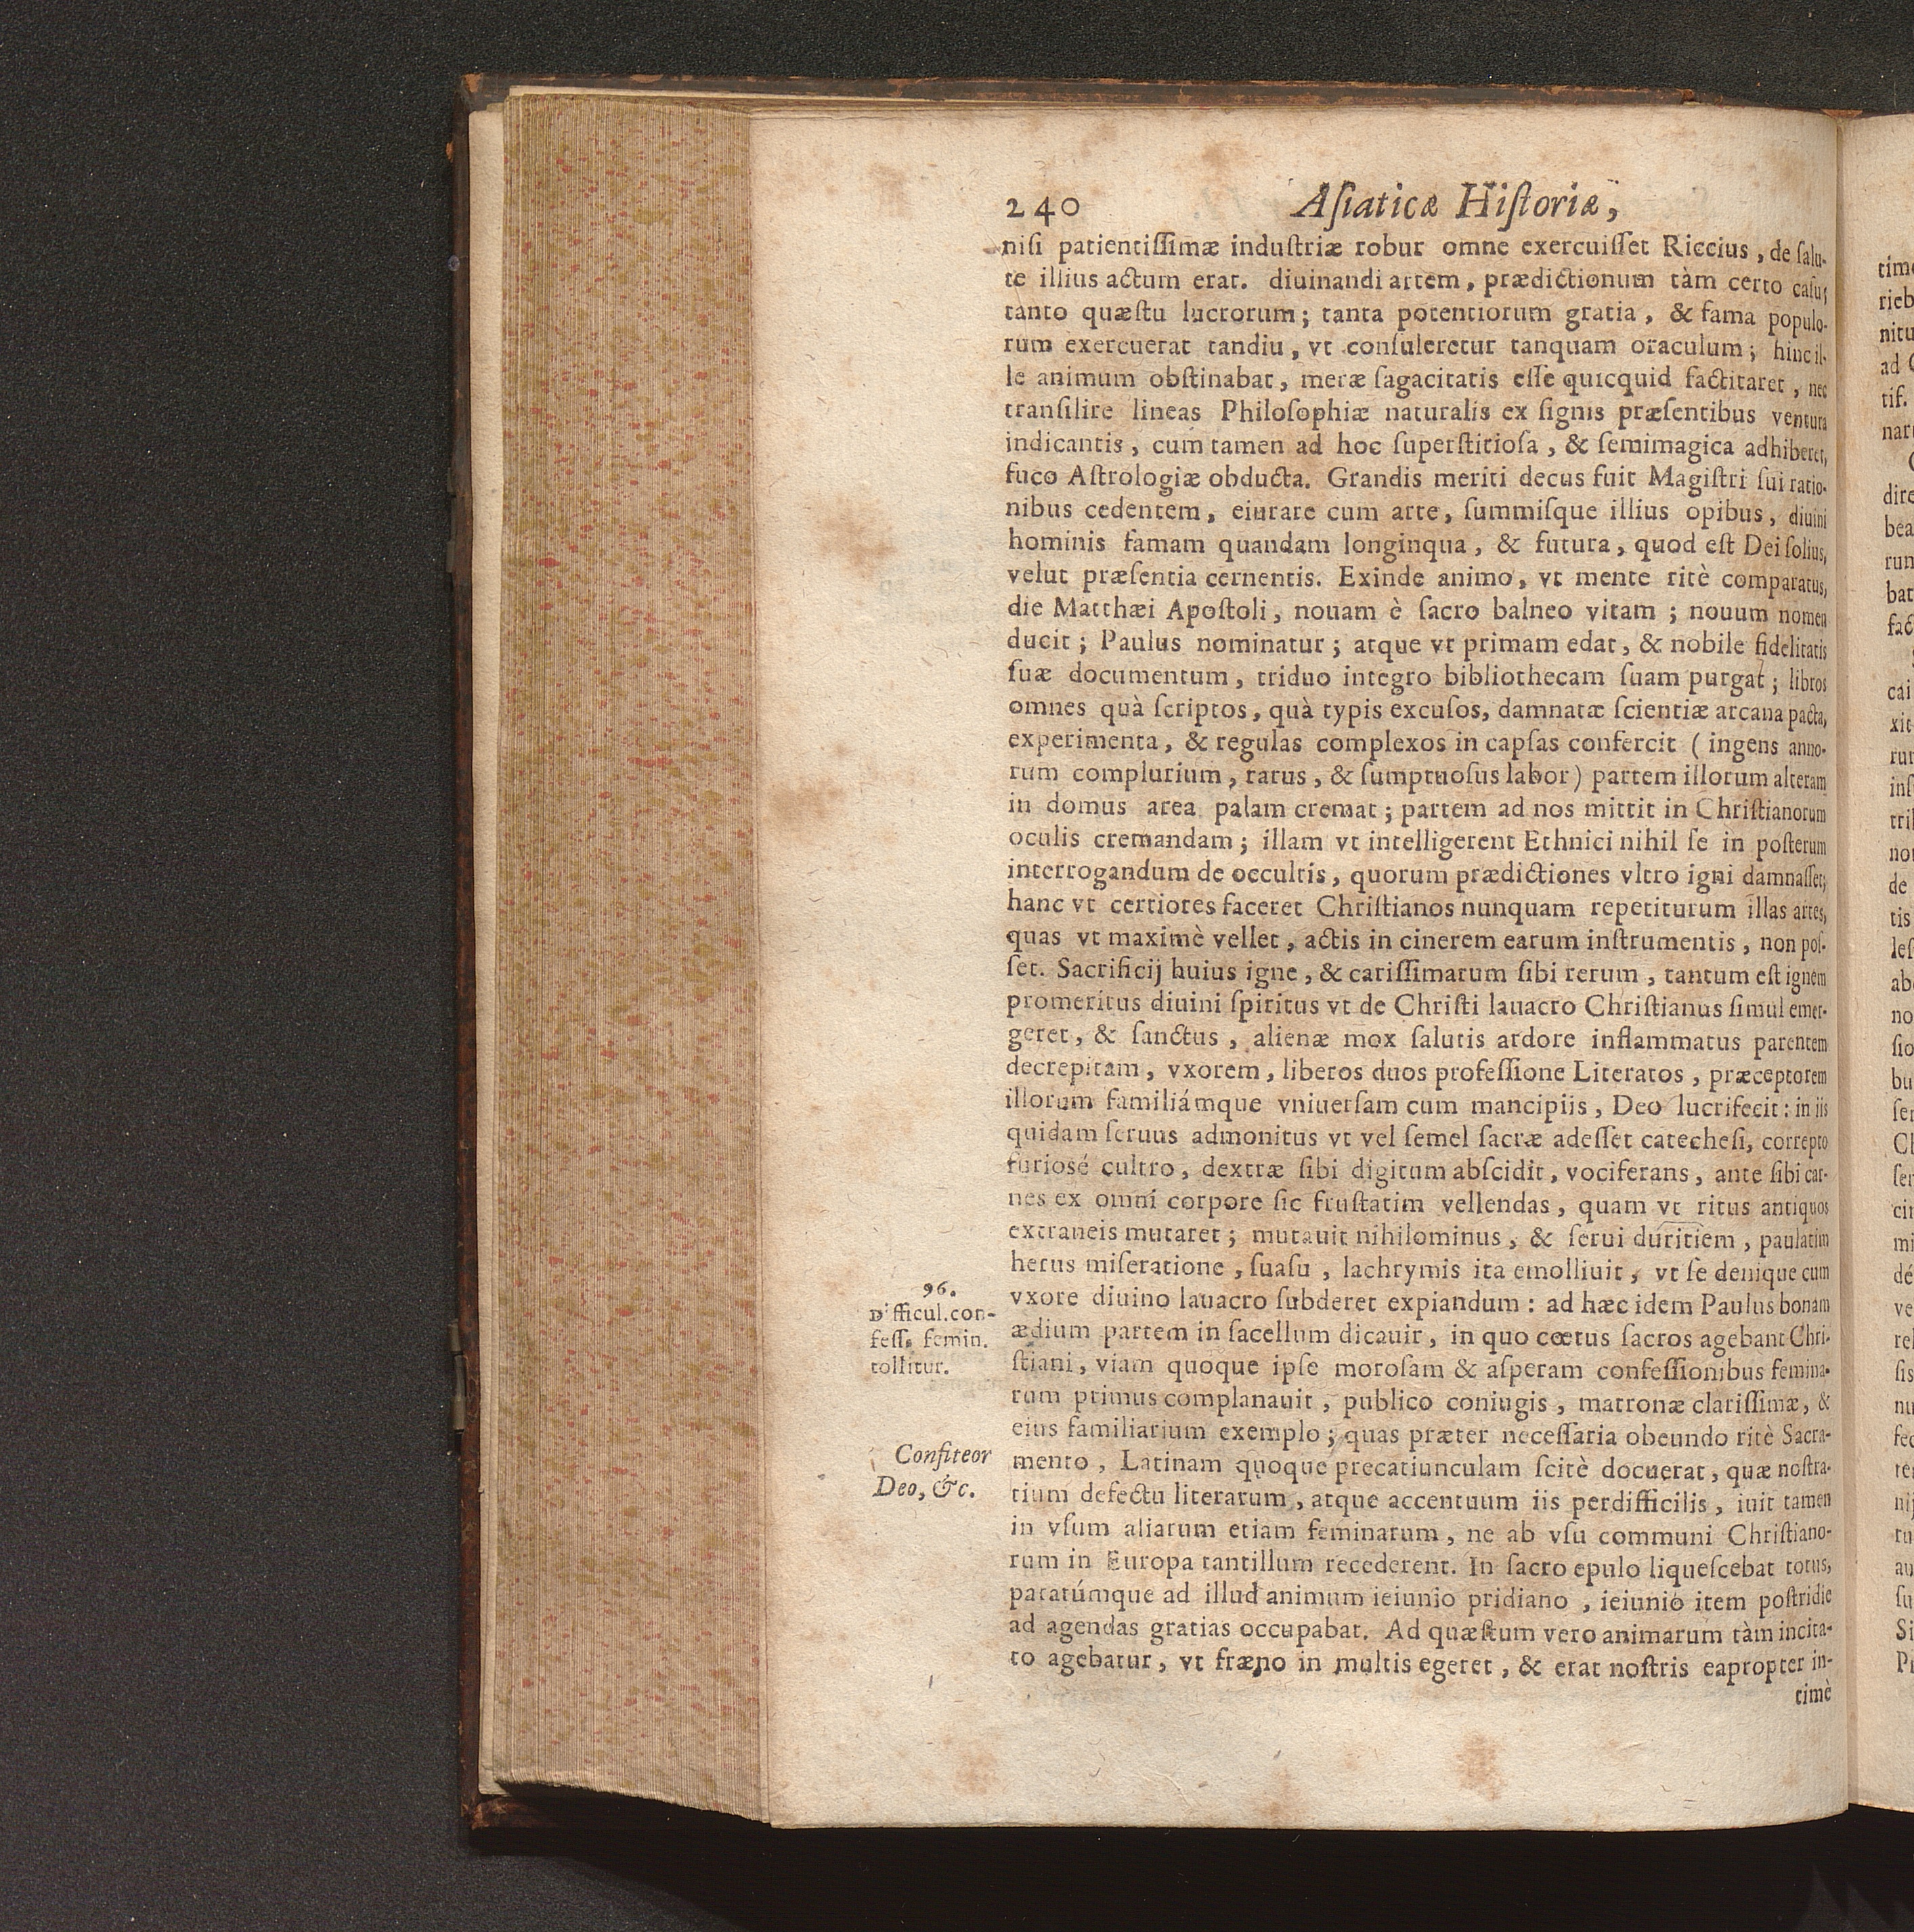 240 Aſiaticæ Hiſtoriæ,
niſi patientiſſimæ induſtriæ robur omne exercuiſſet Riccius, de ſalu-
te illius actum erat. diuinandi artem, prædictionum tàm certo caſu;
tanto quæſtu lucrorum; tanta potentiorum gratia, & fama populo-
rum exercuerat tandiu, vt conſuleretur tanquam oraculum; hinc il-
le animum obſtinabat, meræ ſagacitatis eſſe quicquid factitaret, nec
tranſilire lineas Philoſophiæ naturalis ex ſignis præſentibus ventura
indicantis, cum tamen ad hoc ſuperſtitioſa, & ſemimagica adhiberet,
fuco Aſtrologiæ obducta. Grandis meriti decus fuit Magiſtri ſui ratio-
nibus cedentem, eiurare cum arte, ſummiſque illius opibus, diuini
hominis famam quandam longinqua, & futura, quod eſt Dei ſolius,
velut præſentia cernentis. Exinde animo, vt mente ritè comparatus,
die Matthæi Apoſtoli, nouam è ſacro balneo vitam; nouum nomen
ducit; Paulus nominatur; atque vt primam edat, & nobile fidelitatis
ſuæ documentum, triduo integro bibliothecam ſuam purgat; libros
omnes quà ſcriptos, quà typis excuſos, damnatæ ſcientiæ arcana pacta,
experimenta, & regulas complexos in capſas confercit (ingens anno-
rum complurium, rarus, & ſumptuoſus labor) partem illorum alteram
in domus area palam cremat; partem ad nos mittit in Chriſtianorum
oculis cremandam; illam vt intelligerent Ethnici nihil ſe in poſterum
interrogandum de occultis, quorum prædictiones vltro igni damnaſſet;
hanc vt certiores faceret Chriſtianos nunquam repetiturum illas artes,
quas vt maximè vellet, actis in cinerem earum inſtrumentis, non poſ-
ſet. Sacrificij huius igne, & cariſſimarum ſibi rerum, tantum eſt ignem
promeritus diuini ſpiritus vt de Chriſti lauacro Chriſtianus ſimul emer-
geret, & ſanctus, alienæ mox ſalutis ardore inflammatus parentem
decrepitam, vxorem, liberos duos profeſſione Literatos, præceptorem
illorum familiámque vniuerſam cum mancipiis, Deo lucrifecit: in iis
quidam ſeruus admonitus vt vel ſemel ſacræ adeſſet catecheſi, correpto
furiosé cultro, dextræ ſibi digitum abſcidit, vociferans, ante ſibi car-
nes ex omni corpore ſic fruſtatim vellendas, quam vt ritus antiquos
extraneis mutaret; mutauit nihilominus, & ſerui duritiem, paulatim
herus miſeratione, ſuaſu, lachrymis ita emolliuit, vt ſe denique cum
vxore diuino lauacro ſubderet expiandum: ad hæc idem Paulus bonam
ædium partem in ſacellum dicauit, in quo cœtus ſacros agebant Chri-
ſtiani, viam quoque ipſe moroſam & aſperam confeſſionibus femina-
rum primus complanauit, publico coniugis, matronæ clariſſimæ, &
eius familiarium exemplo; quas præter neceſſaria obeundo ritè Sacra-
mento, Latinam quoque precatiunculam ſcitè docuerat, quæ noſtra-
tium defectu literarum, atque accentuum iis perdifficilis, iuit tamen
in vſum aliarum etiam feminarum, ne ab vſu communi Chriſtiano-
rum in Europa tantillum recederent. In ſacro epulo liqueſcebat totus,
paratúmque ad illud animum ieiunio pridiano, ieiunio item poſtridie
ad agendas gratias occupabat. Ad quæſtum vero animarum tàm incita-
to agebatur, vt fræno in multis egeret, & erat noſtris eapropter in-
timè
96.
Difficul. con-
feſſ. femin.
tollitur.
Confiteor
Deo, &c.